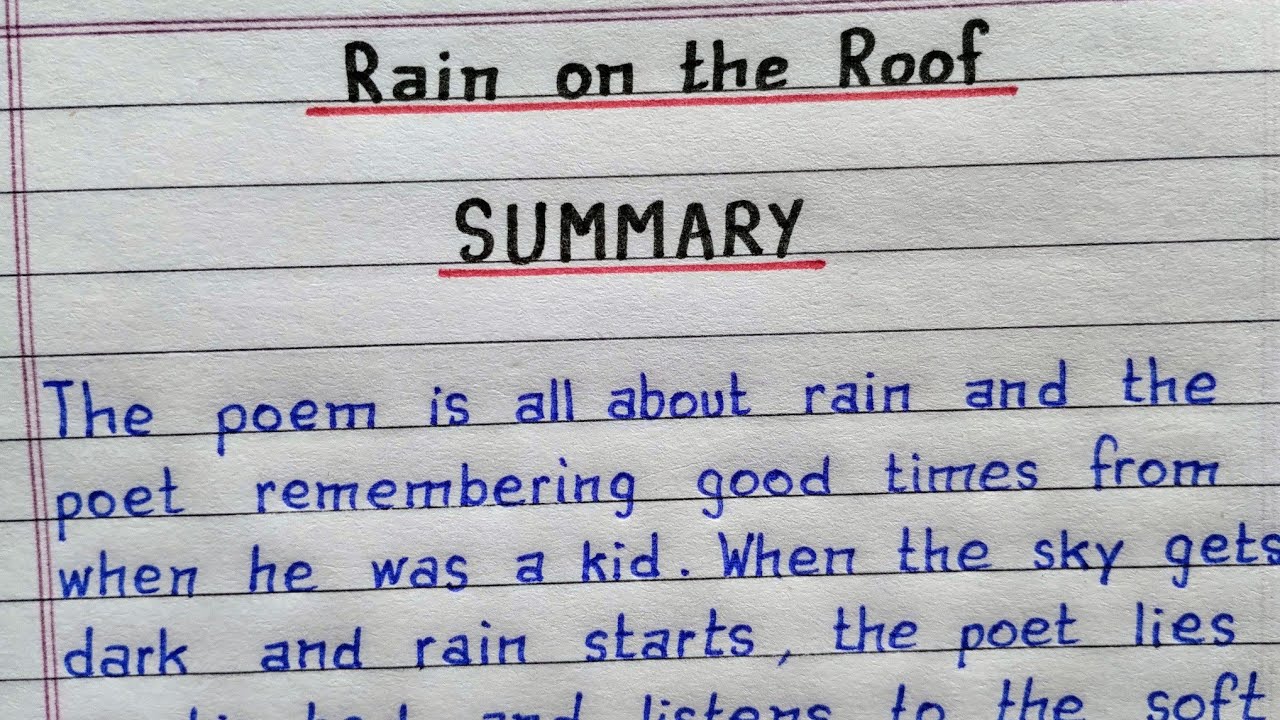 Rain on the Roof
SUMMARY
The poem is all about rain and the
poet remembering good times from
when he was a kid. When the sky gets
dark and rain starts, the poet lies
and listens to the soft